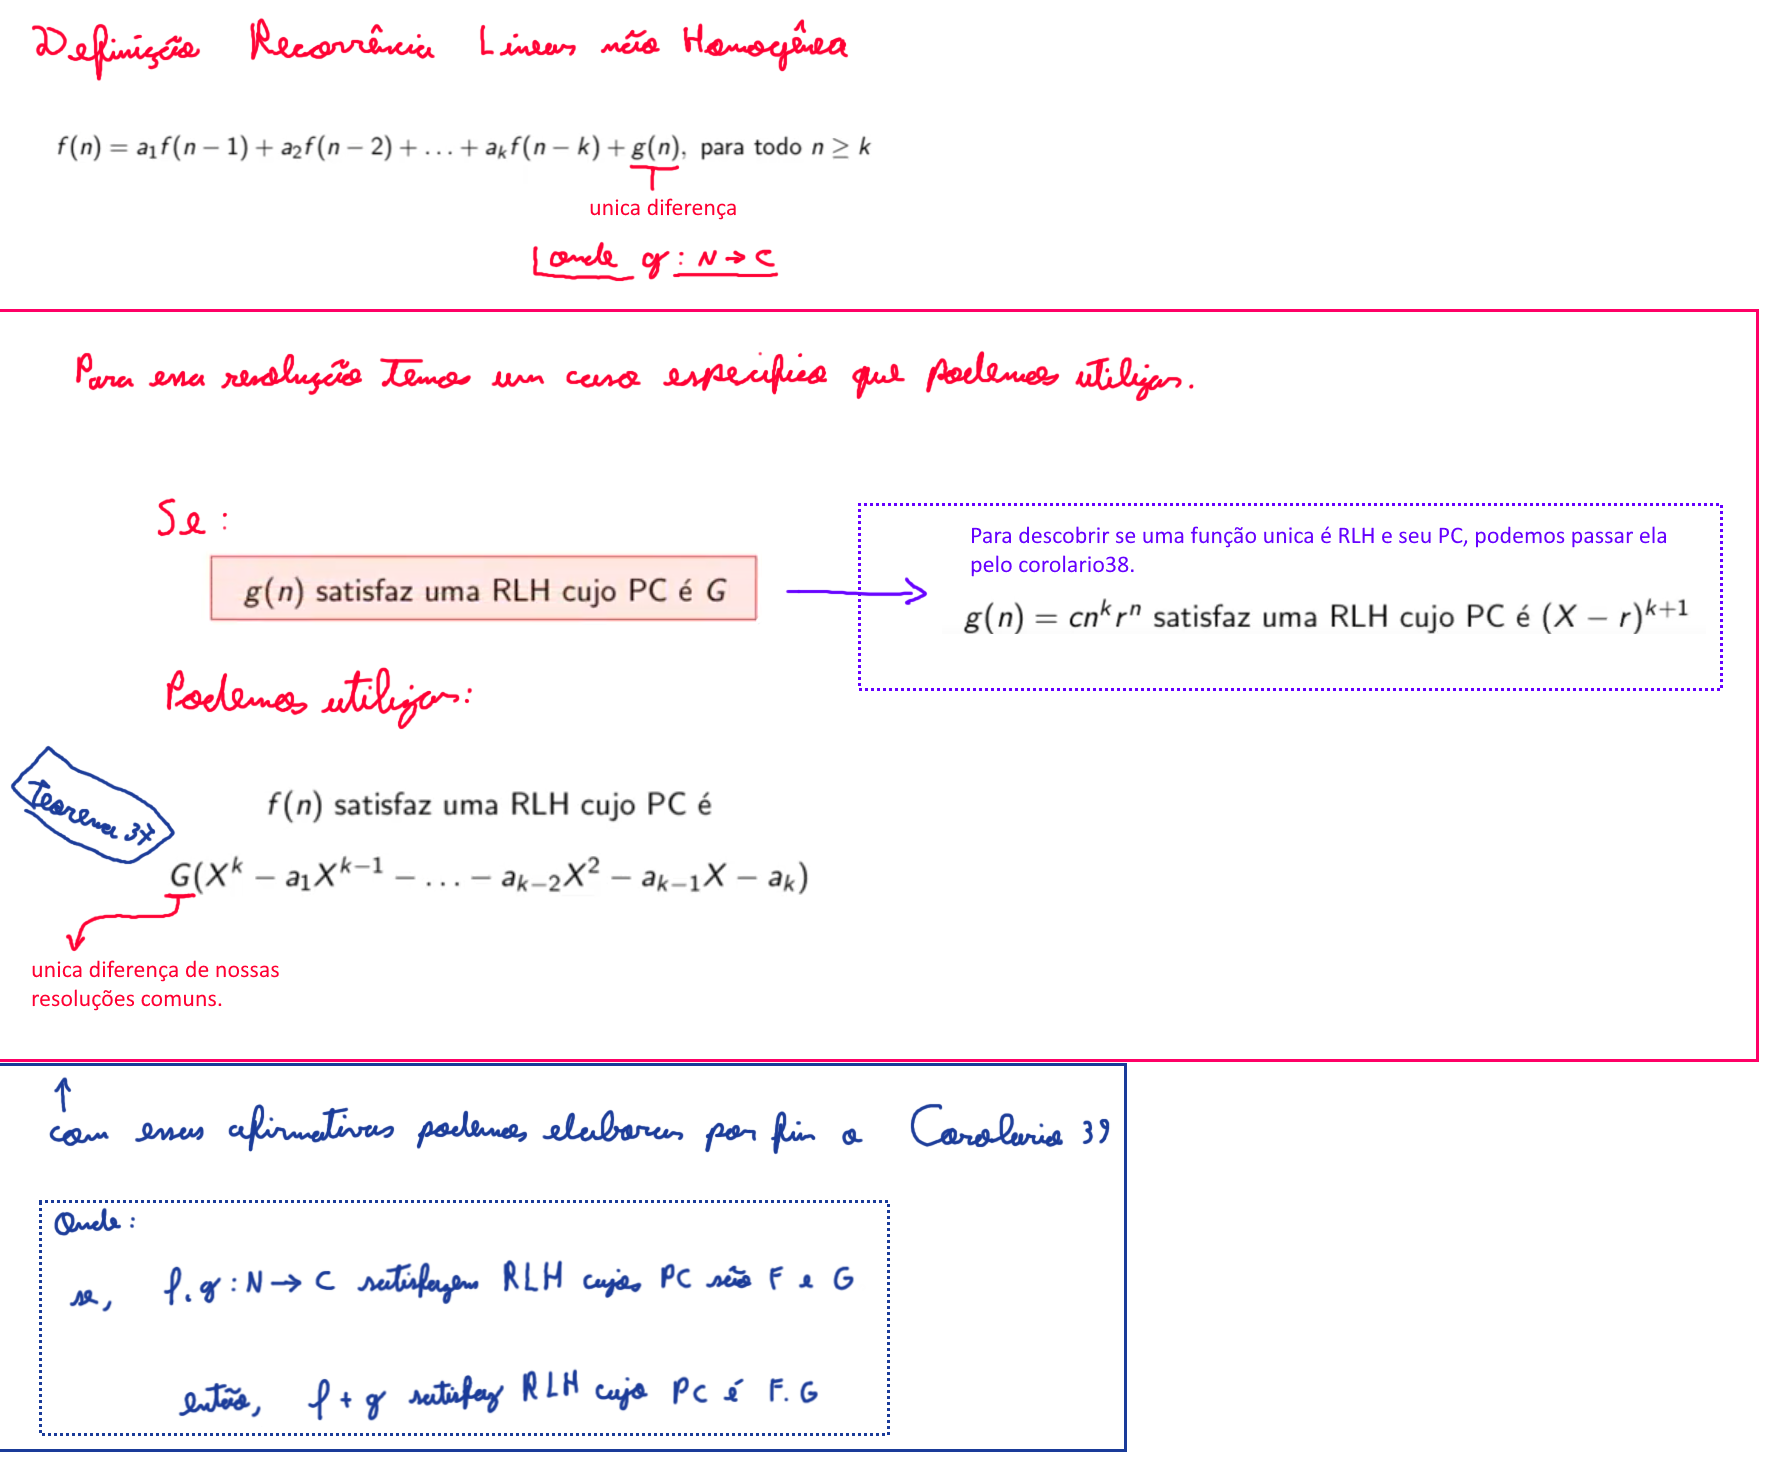 Definição Recorrência Linear não Homogênea
f(n) = a₁f(n − 1) + a₂f(n − 2) + … + aₖf(n − k) + g(n), para todo n ≥ k
unica diferença
onde g : N → C
Para essa resolução Temos um caso especifico que podemos utilizar.
Se :
Para descobrir se uma função unica é RLH e seu PC, podemos passar ela
pelo corolario38.
g(n) satisfaz uma RLH cujo PC é G
g(n) = cnᵏrⁿ satisfaz uma RLH cujo PC é (X − r)ᵏ⁺¹
Podemos utilizar:
Teorema 37
f(n) satisfaz uma RLH cujo PC é
G(Xᵏ − a₁Xᵏ⁻¹ − … − aₖ₋₂X² − aₖ₋₁X − aₖ)
unica diferença de nossas
resoluções comuns.
com essas afirmativas podemos elaborar por fim o Corolario 39
Onde :
se, f, g : N → C satisfazem RLH cujos PC são F e G
então, f + g satisfaz RLH cujo PC é F. G